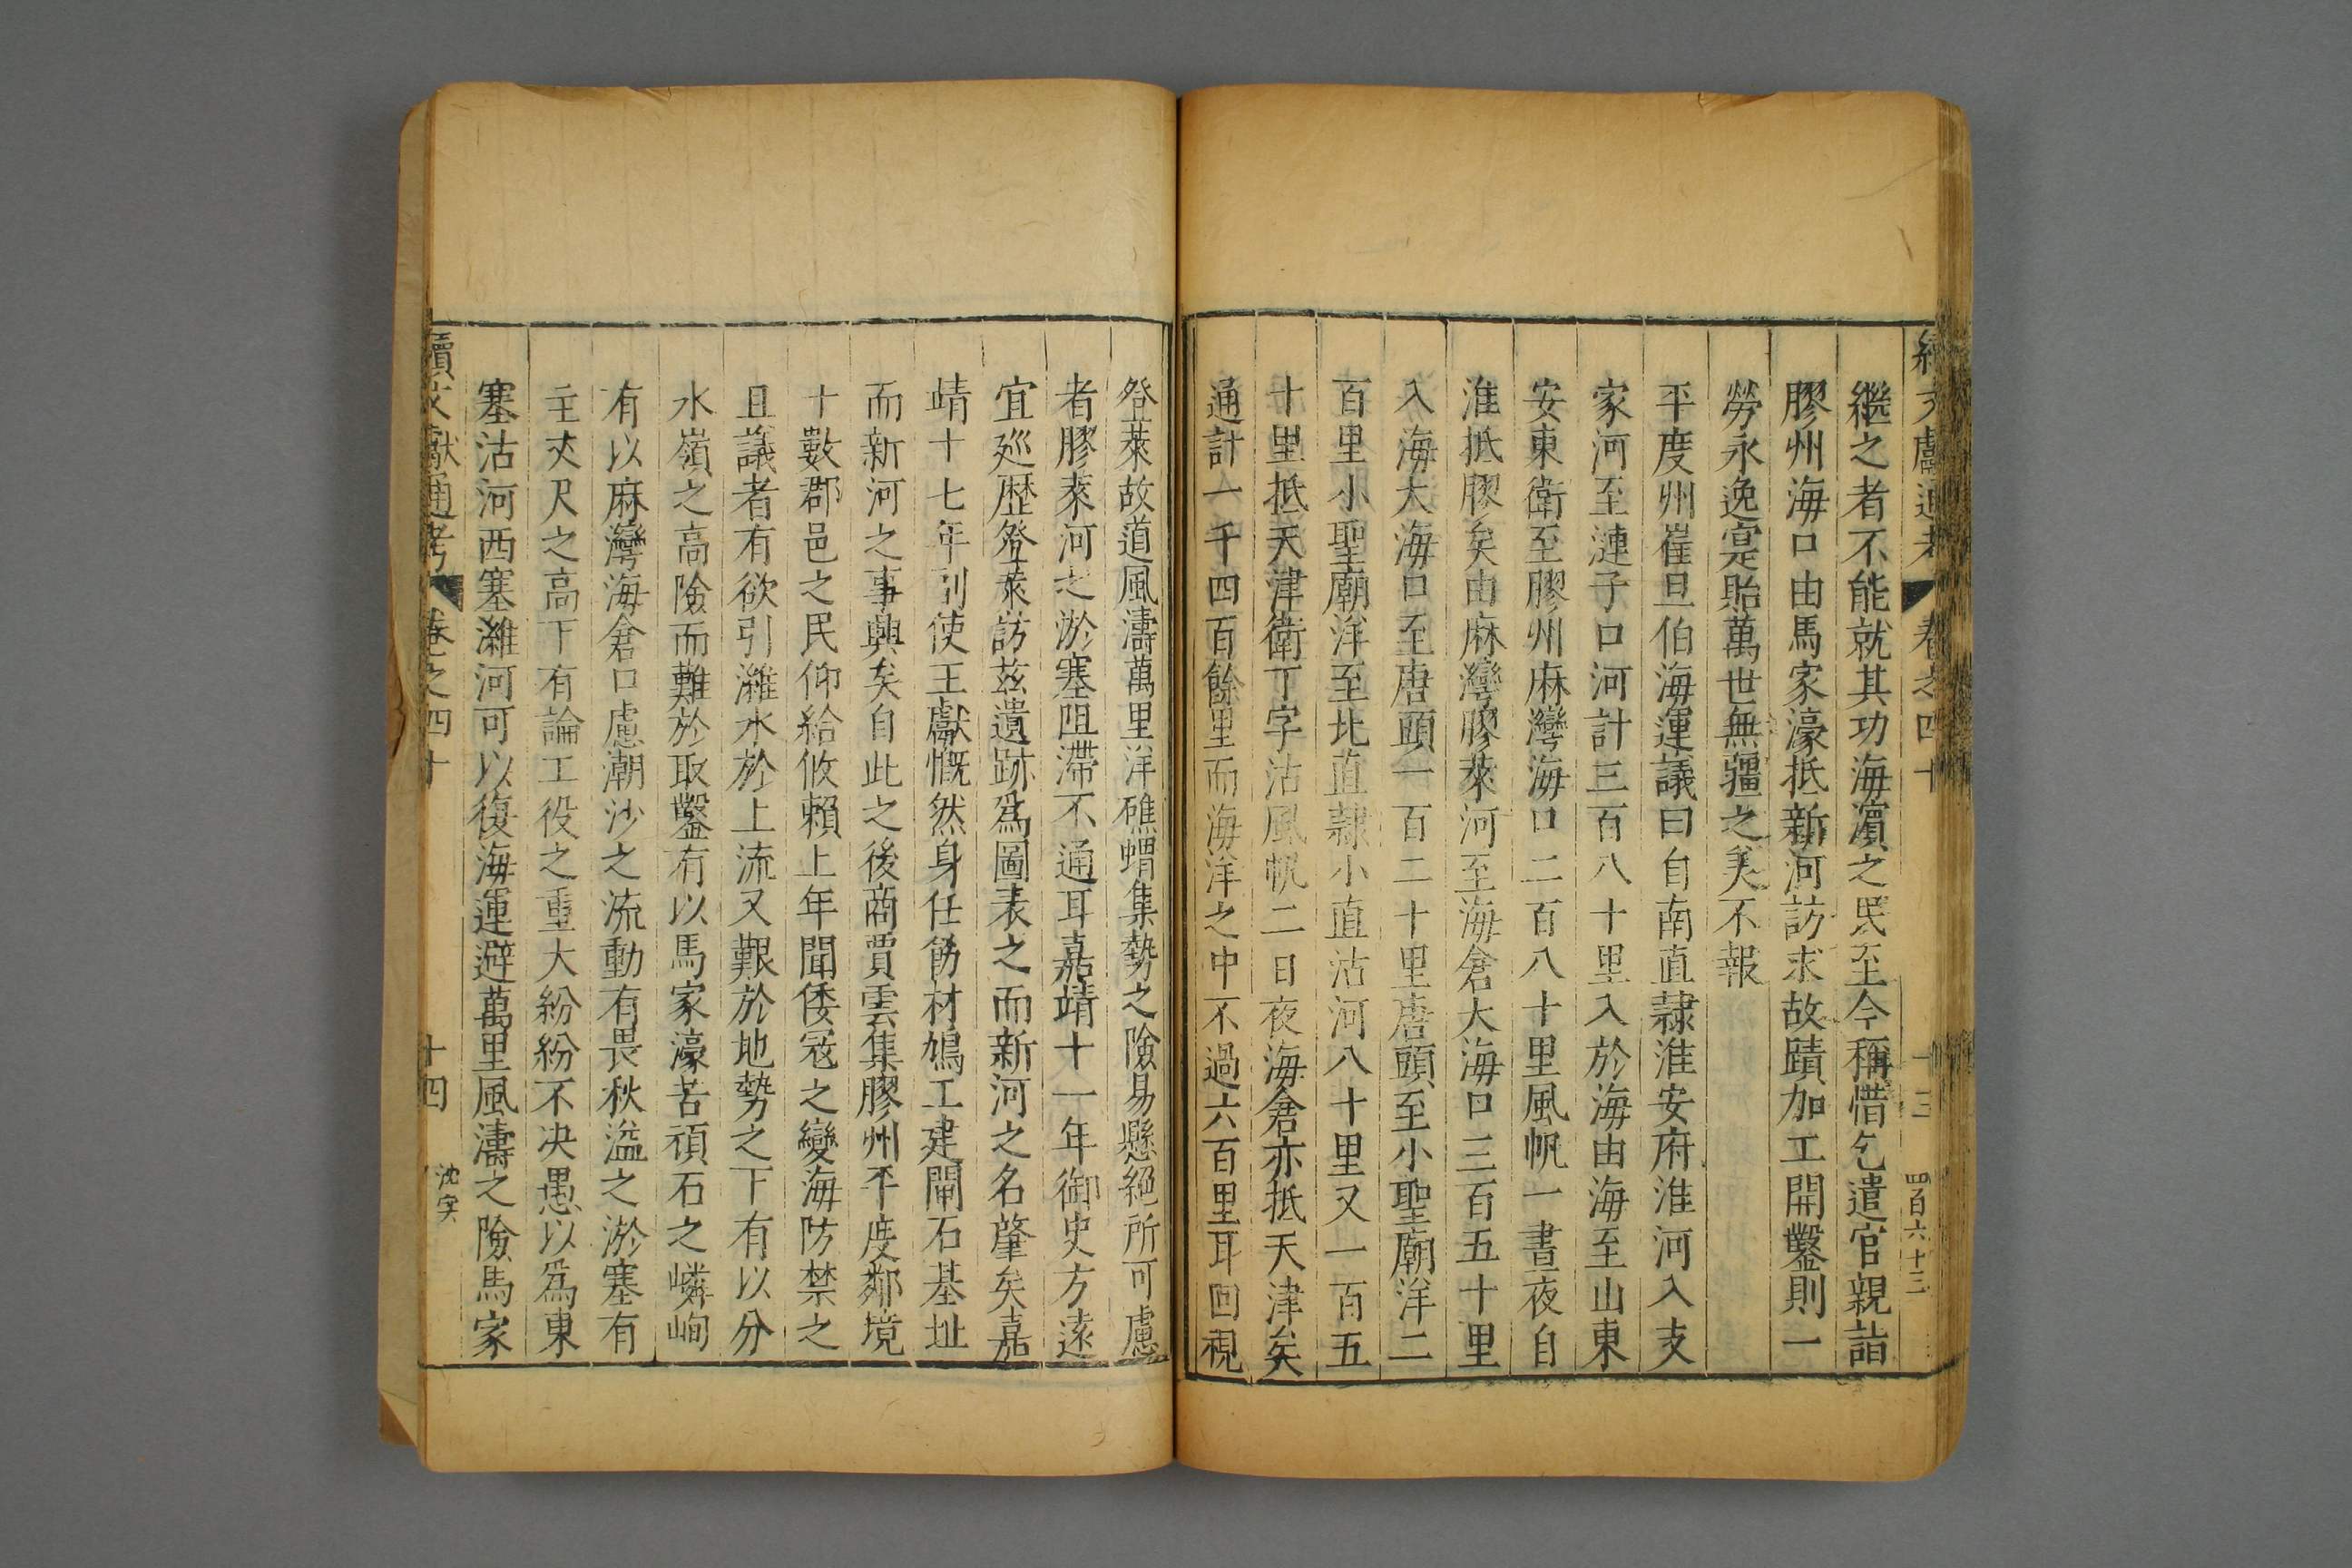 續文獻通考 卷之四十 十三 四百六十三
繼之者不能就其功海濱之民至今稱惜乞遣官親詣
膠州海口由馬家濠抵新河訪求故蹟加工開鑿則一
勞永逸寔貽萬世無疆之美不報
平度州崔旦伯海運議曰自南直隷淮安府淮河入支
家河至漣子口河計三百八十里入於海由海至山東
安東衛至膠州麻灣海口二百八十里風帆一晝夜自
淮抵膠矣由麻灣膠萊河至海倉大海口三百五十里
入海大海口至唐頭一百二十里唐頭至小聖廟洋二
百里小聖廟洋至北直隷小直沽河八十里又一百五
十里抵天津衛丁字沽風帆二日夜海倉亦抵天津矣
通計一千四百餘里而海洋之中不過六百里耳回視
登萊故道風濤萬里洋礁蝟集勢之險易懸絕所可慮
者膠萊河之淤塞阻滯不通耳嘉靖十一年御史方遠
宜廵歷登萊訪茲遺跡爲圖表之而新河之名肇矣嘉
靖十七年副使王獻慨然身任飭材鳩工建閘石基址
而新河之事興矣自此之後商賈雲集膠州平度鄰境
十數郡邑之民仰給攸賴上年聞倭冦之變海防禁之
且議者有欲引濰水於上流又艱於地勢之下有以分
水嶺之高險而難於取鑿有以馬家濠苦頑石之嶙峋
有以麻灣海倉口慮潮沙之流動有畏秋溢之淤塞有
主丈尺之高下有論工役之重大紛紛不决愚以爲東
塞沽河西塞濰河可以復海運避萬里風濤之險馬家
續文獻通考 卷之四十 十四